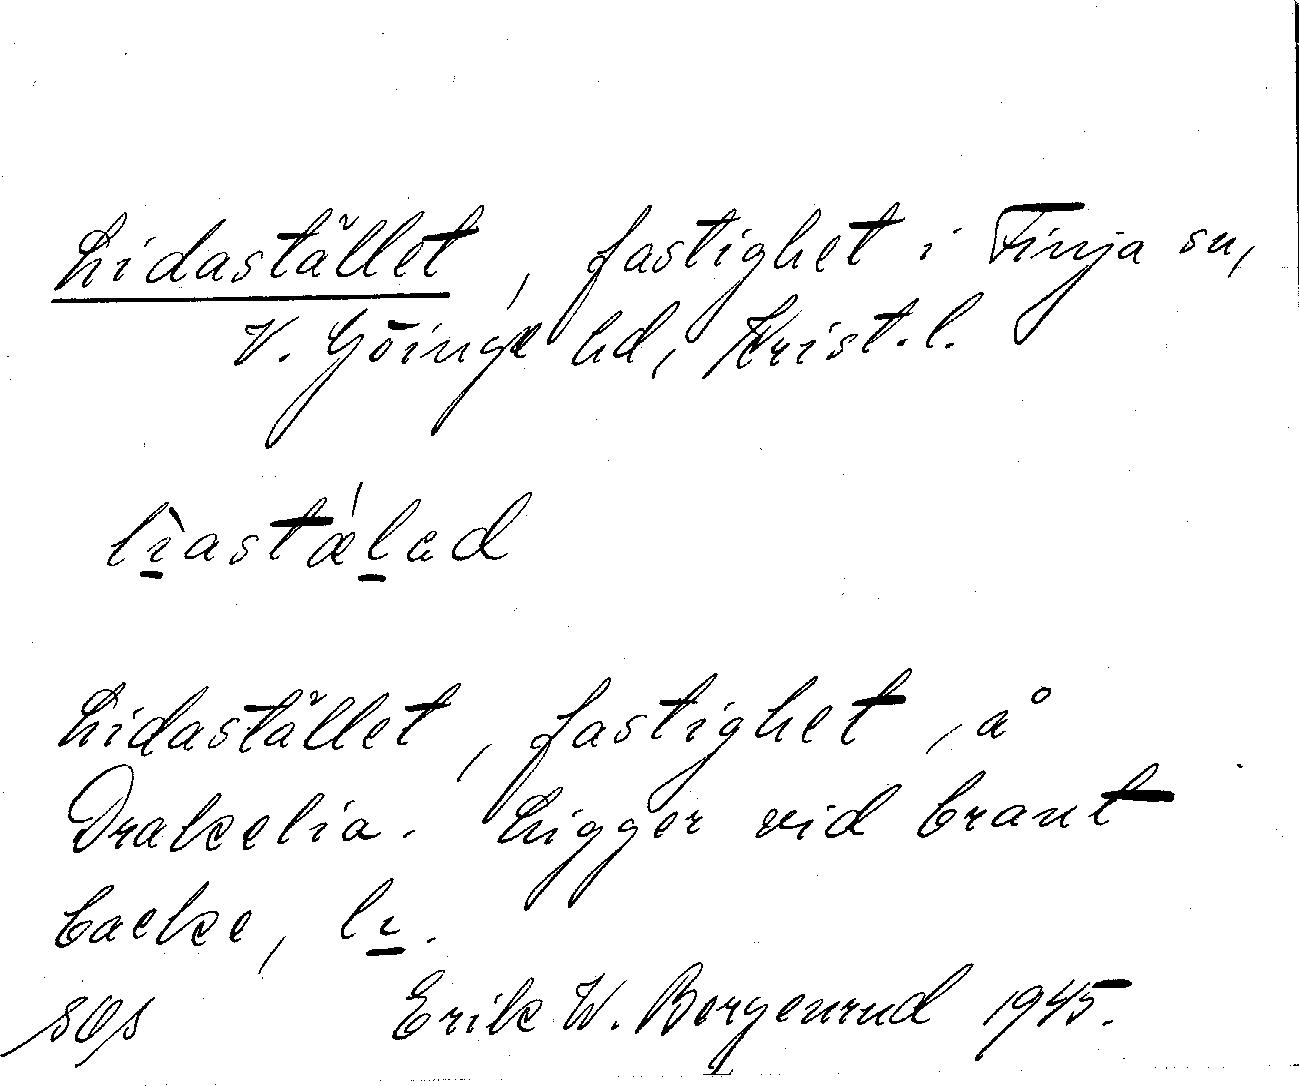 Lidastället, fastighet i Finja sn,
V. Göinge hd, Krist.l.
lìastǽlad
Lidastället, fastighet, å
Drakelia. Ligger vid brant
backe, lı.
Erik W. Bergenrud 1945.